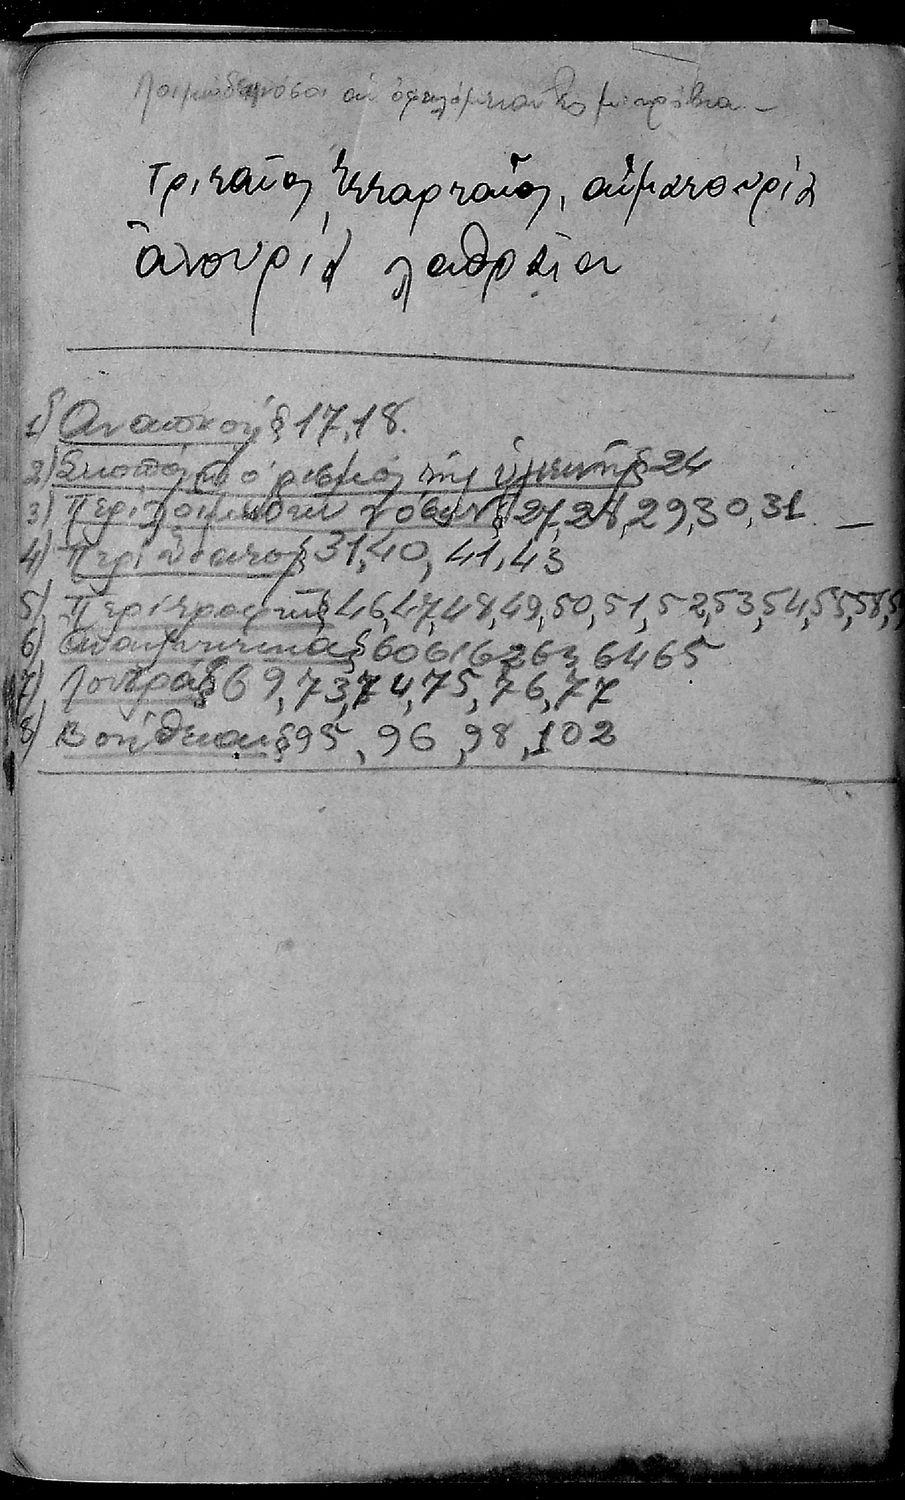 Λοιμώδεις νόσοι αἱ ὀφειλόμεναι εἰς μικρόβια –
τριταῖος, τεταρταῖος, αἱματουρία
ἀνουρία λαθραῖαι
1) Ἀναπνοή § 17, 18.
2) Σκοπός καὶ ὁρισμός τῆς ὑγιεινῆς § 24
3) Περί λοιμωδῶν νόσων § 27, 28, 29, 30, 31 –
4) Περί ὕδατος § 31, 40, 41, 43
5) Περί τροφῆς § 46, 47, 48, 49, 50, 51, 52, 53, 54, 55, 58, 5
6) § 60 61 62 63, 64 65
7) Λουτρά § 69, 73, 74, 75, 76, 77
8) Βοήθειαι § 95, 96, 98, 102